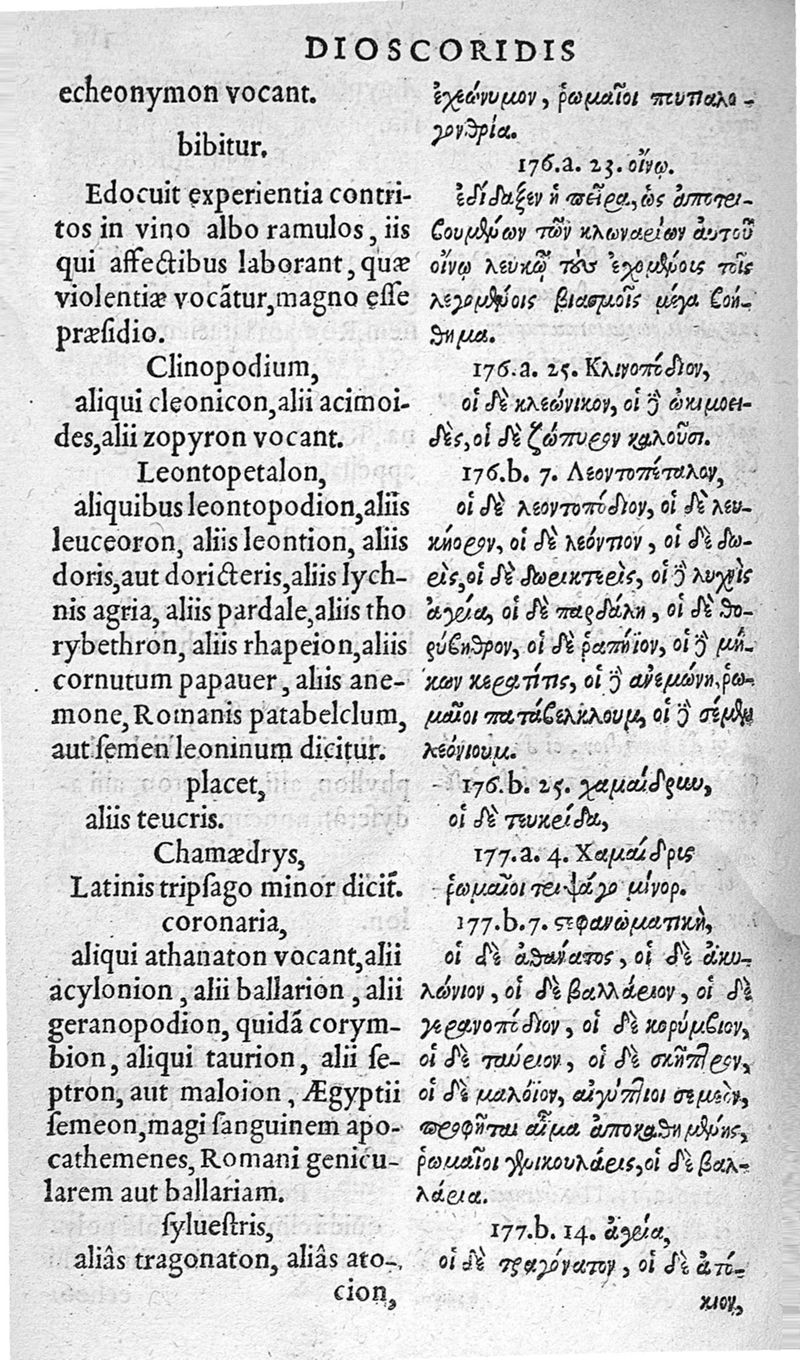 DIOSCORIDIS
echeonymon vocant.
bibitur.
Edocuit experientia contri-
tos in vino albo ramulos, iis
qui affectibus laborant, quæ
violentiæ vocãtur, magno esse
præsidio.
Clinopodium,
aliqui cleonicon, alii acimoi-
des, alii zopyron vocant.
Leontopetalon,
aliquibus leontopodion, aliis
leuceoron, aliis leontion, aliis
doris, aut doricteris, aliis lych-
nis agria, aliis pardale, aliis tho
rybethron, aliis rhapeion, aliis
cornutum papauer, aliis ane-
mone, Romanis patabelclum,
aut semen leoninum dicitur.
placet,
aliis teucris.
Chamædrys,
Latinis tripsago minor dicit᷒.
coronaria,
aliqui athanaton vocant, alii
acylonion, alii ballarion, alii
geranopodion, quidã corym-
bion, aliqui taurion, alii se-
ptron, aut maloion, Ægyptii
semeon, magi sanguinem apo-
cathemenes, Romani genicu-
larem aut ballariam.
syluestris,
aliâs tragonaton, aliâs ato-
cion,
ἐχεώνυμον, ῥωμαῖοι πτυπαλο-
γονθρία.
176.a. 23. οἴνῳ.
ἐδίδαξεν ἡ πεῖρα, ὡς ἀποτρι-
βουμένων τῶν κλωναρίων αὐτοῦ
οἴνῳ λευκῷ τοὺς ἐχομένοις τοῖς
λεγομένοις βιασμοῖς μέγα βοή-
θημα.
176.a. 25. Κλινοπόδιον,
οἱ δὲ κλεώνικον, οἱ δὲ ὠκιμοει-
δὲς, οἱ δὲ ζώπυρον καλοῦσι.
176.b. 7. Λεοντοπέταλον,
οἱ δὲ λεοντοπόδιον, οἱ δὲ λευ-
κήορον, οἱ δὲ λεόντιον, οἱ δὲ δω-
ρὶς, οἱ δὲ δωρικτερὶς, οἱ δὲ λυχνὶς
ἀγρία, οἱ δὲ παρδάλη, οἱ δὲ θο-
ρύβηθρον, οἱ δὲ ῥαπήϊον, οἱ δὲ μή-
κων κερατῖτις, οἱ δὲ ἀνεμώνη, ῥω-
μαῖοι παταβελκλουμ, οἱ δὲ σέμεν
λεόνιουμ.
176.b. 25. χαμαίδρυν,
οἱ δὲ τευκρίδα,
177.a. 4. Χαμαίδρις
ῥωμαῖοι τριψάγο μίνορ.
177.b. 7. στεφανωματικὴ,
οἱ δὲ ἀθάνατος, οἱ δὲ ἀκυ-
λώνιον, οἱ δὲ βαλλάριον, οἱ δὲ
γερανοπόδιον, οἱ δὲ κορύμβιον,
οἱ δὲ ταύριον, οἱ δὲ σκῆπτρον,
οἱ δὲ μαλόϊον, αἰγύπτιοι σεμεὸν,
προφῆται αἷμα ἀποκαθημένης,
ῥωμαῖοι γενικουλάρις, οἱ δὲ βαλ-
λάρια.
177.b. 14. ἀγρία,
οἱ δὲ τραγόνατον, οἱ δὲ ἀτό-
κιον,